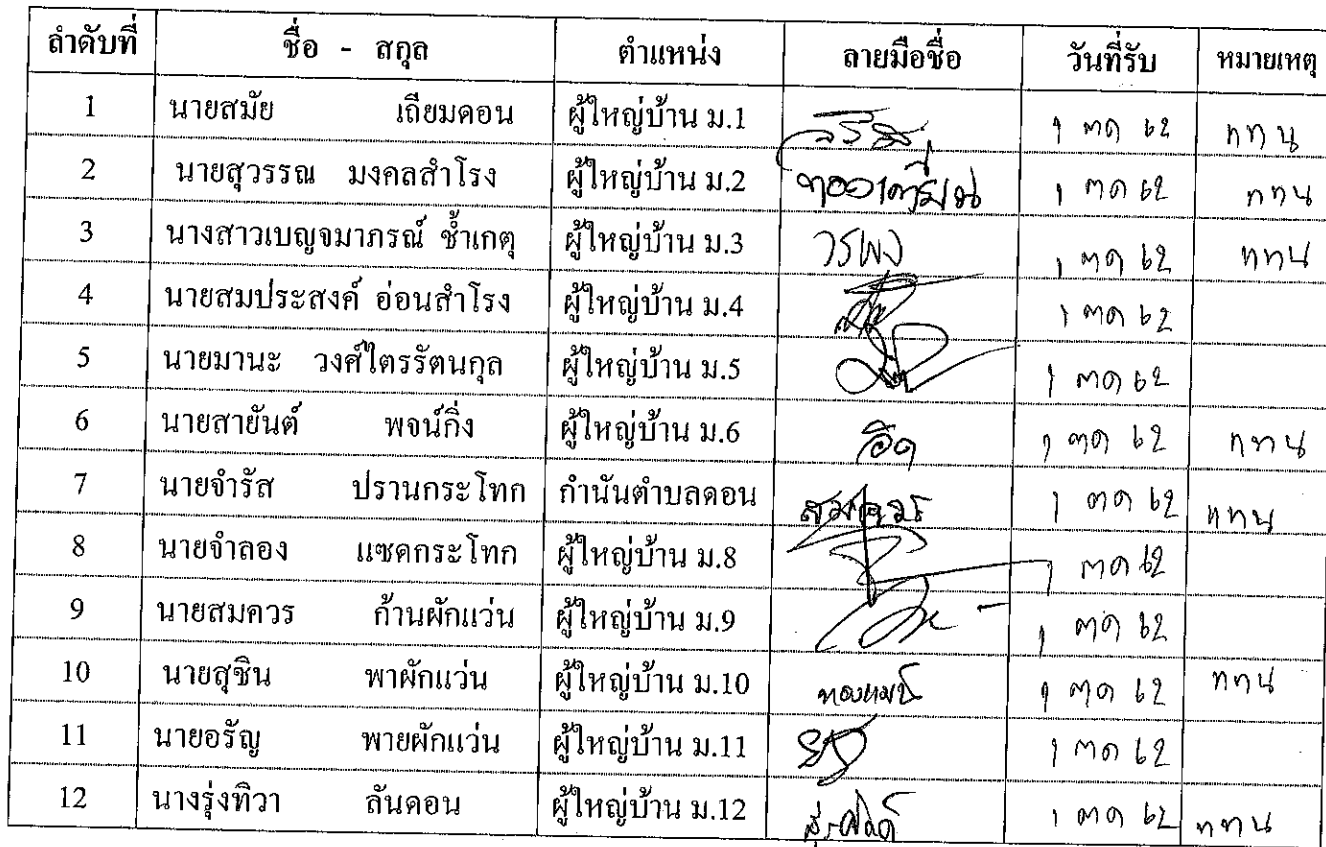 ลำดับที่ ชื่อ - สกุล ตำแหน่ง ลายมือชื่อ วันที่รับ หมายเหตุ
1 นายสมัย เถียมดอน ผู้ใหญ่บ้าน ม.1 1 ตค 62 แทน
2 นายสุวรรณ มงคลสำโรง ผู้ใหญ่บ้าน ม.2 1 ตค 62 แทน
3 นางสาวเบญจมาภรณ์ ช้ำเกตุ ผู้ใหญ่บ้าน ม.3 วรพง 1 ตค 62 แทน
4 นายสมประสงค์ อ่อนสำโรง ผู้ใหญ่บ้าน ม.4 1 ตค 62
5 นายมานะ วงศ์ไตรรัตนกุล ผู้ใหญ่บ้าน ม.5 1 ตค 62
6 นายสายันต์ พจน์กิ่ง ผู้ใหญ่บ้าน ม.6 1 ตค 62 แทน
7 นายจำรัส ปรานกระโทก กำนันตำบลดอน สมควร 1 ตค 62 แทน
8 นายจำลอง แซดกระโทก ผู้ใหญ่บ้าน ม.8 1 ตค 62
9 นายสมควร ก้านผักแว่น ผู้ใหญ่บ้าน ม.9 1 ตค 62
10 นายสุชิน พาผักแว่น ผู้ใหญ่บ้าน ม.10 1 ตค 62 แทน
11 นายอรัญ พายผักแว่น ผู้ใหญ่บ้าน ม.11 1 ตค 62
12 นางรุ่งทิวา ลันดอน ผู้ใหญ่บ้าน ม.12 1 ตค 62 แทน